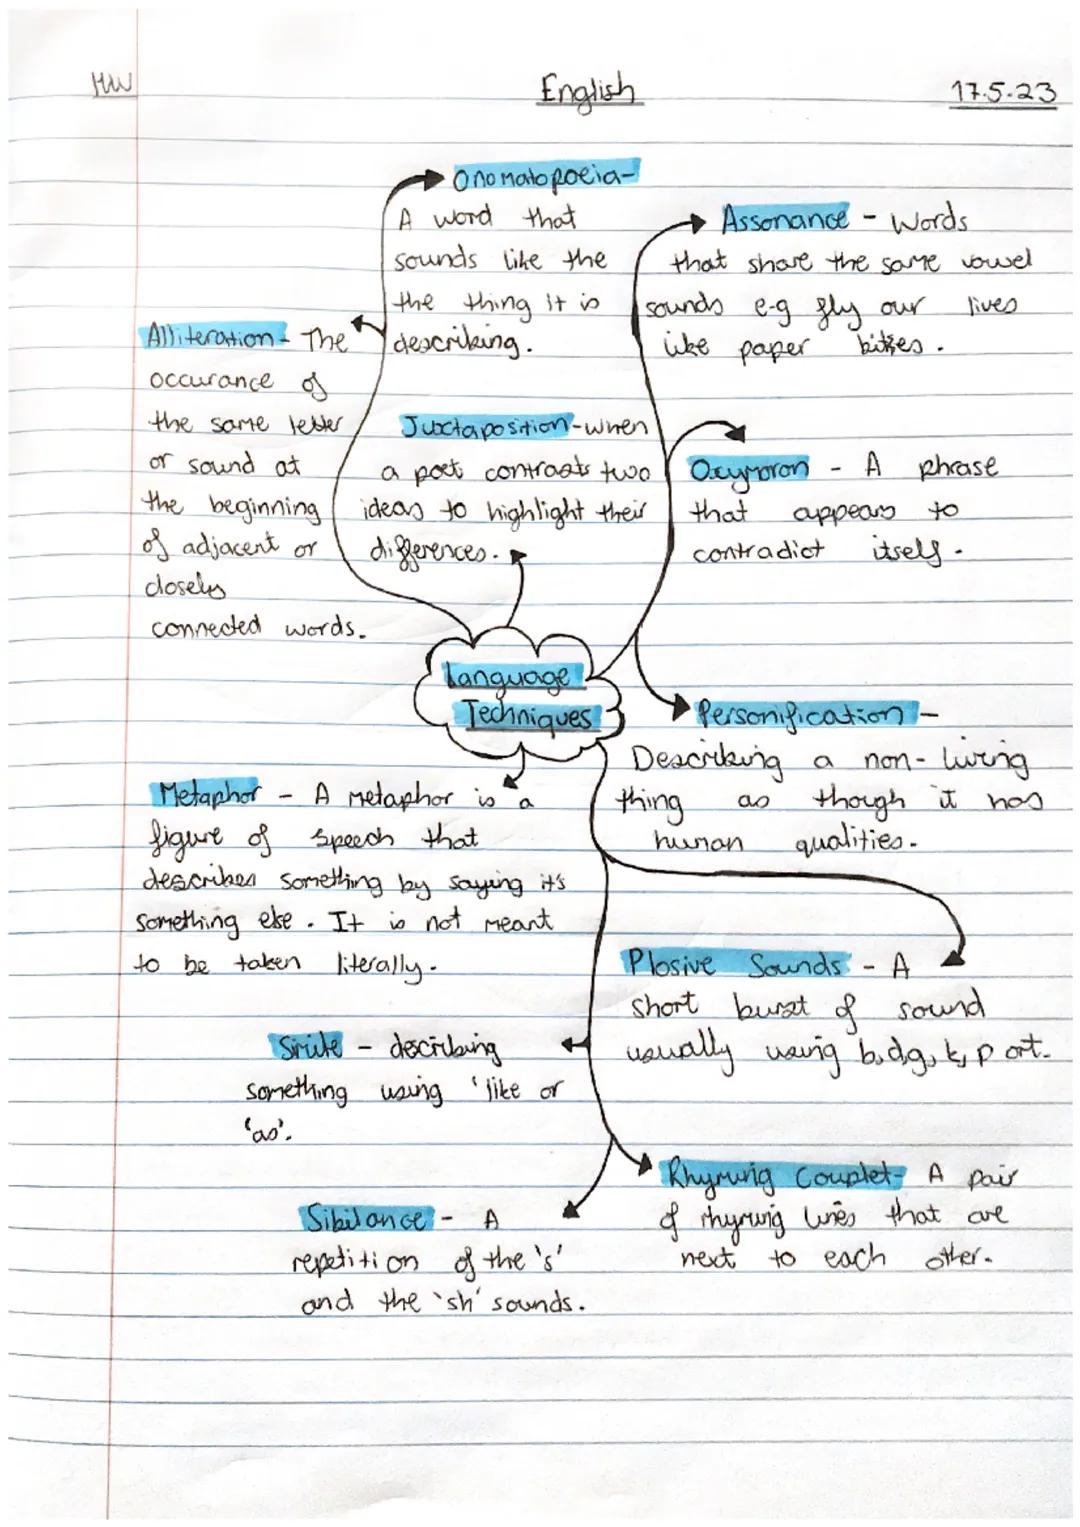 HW
English
17.5.23
Onomatopoeia-
A word that
sounds like the
the thing it is
describing.
Assonance - Words
that share the same vowel
sounds e-g fly our lives
like paper kites.
Alliteration - The
occurance of
the same letter
or sound at
the beginning
of adjacent or
closely
connected words.
Juxtaposition - when
a poet contrasts two
ideas to highlight their
differences.
Oxymoron - A phrase
that appears to
contradict itself.
Language
Techniques
Personification -
Describing a non-living
thing as though it has
human qualities.
Metaphor - A metaphor is a
figure of speech that
describes something by saying it's
something else. It is not meant
to be taken literally.
Plosive Sounds - A
short burst of sound
usually using b,d,g, k, p or t.
Simile - describing
something using 'like or
'as'.
Rhyming Couplet- A pair
of rhyming lines that are
next to each other.
Sibilance - A
repetition of the 's'
and the 'sh' sounds.